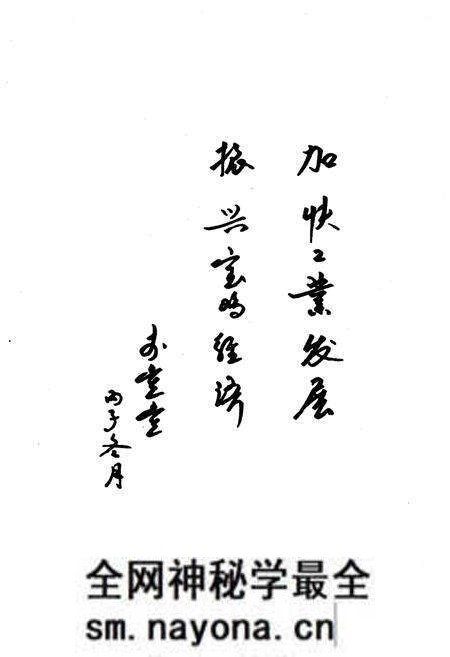 加快工業发展
振兴宝鸡经济
丙子冬月
全网神秘学最全
sm.nayona.cn